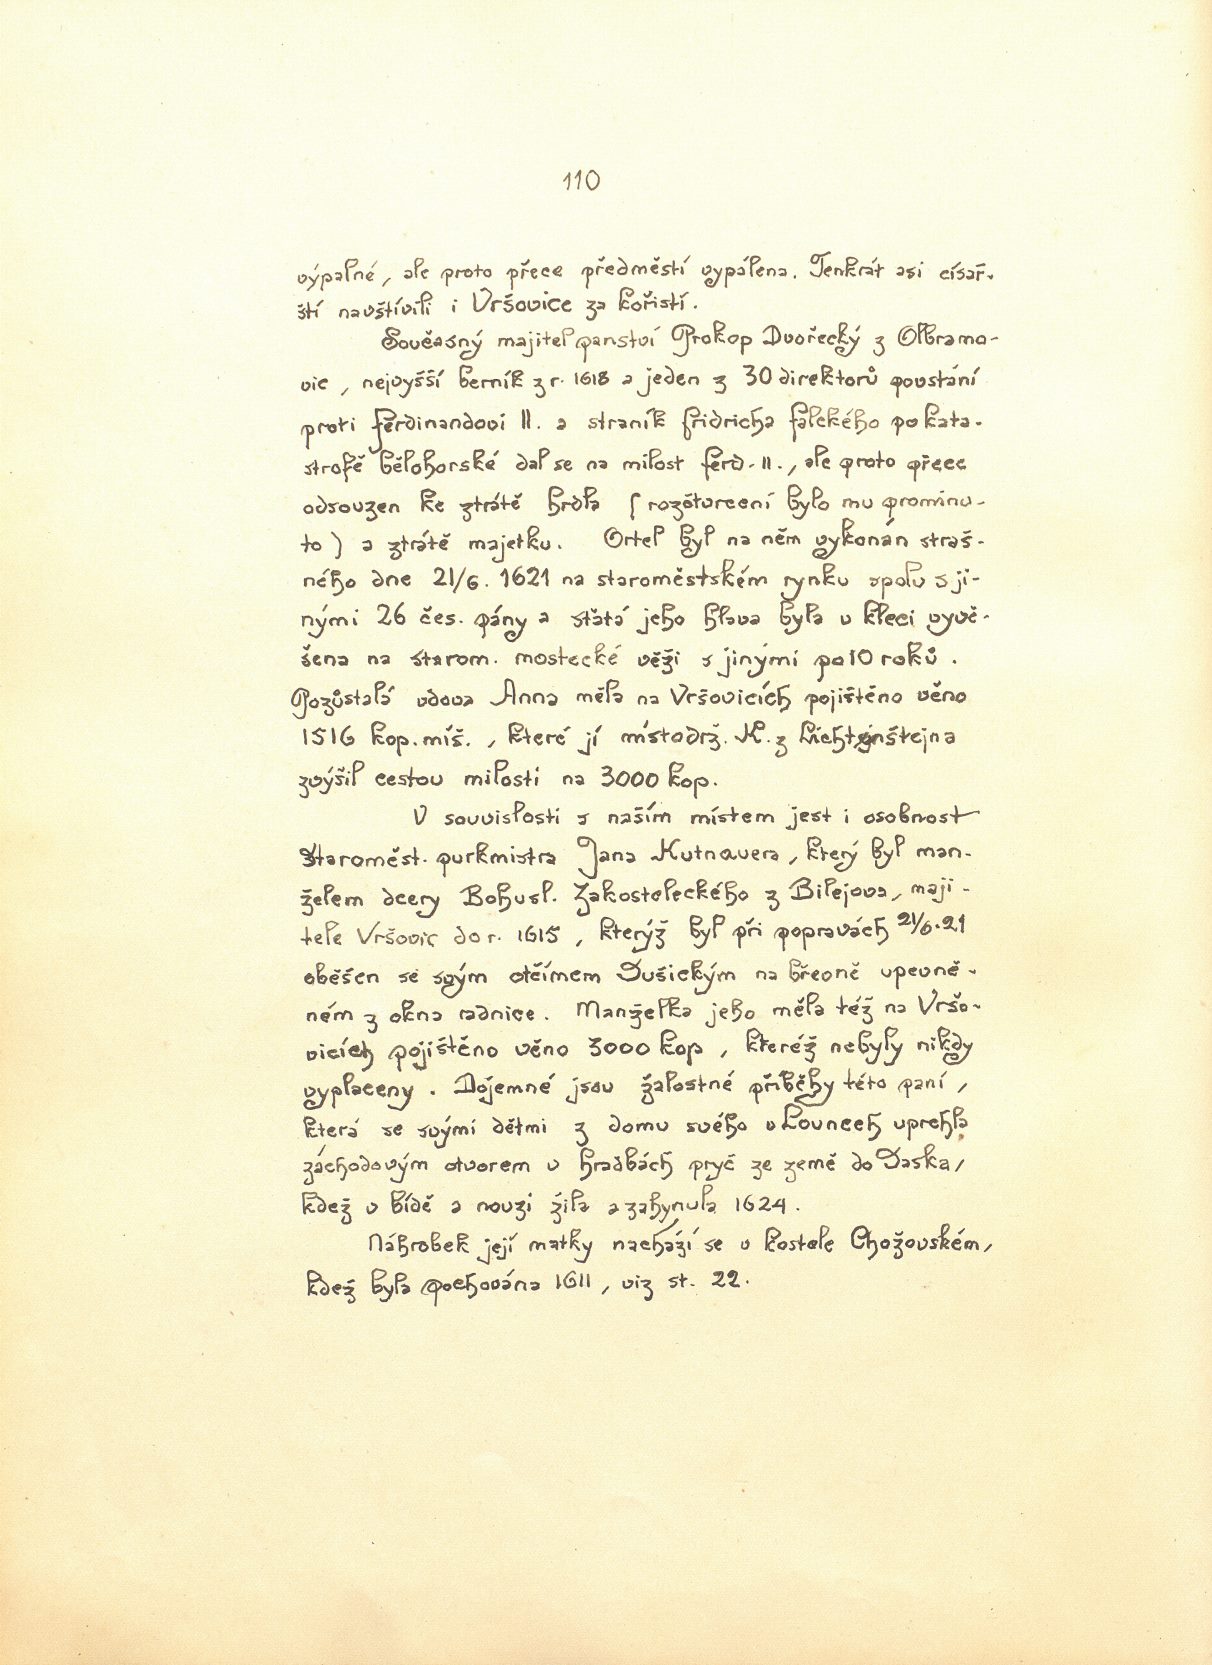 110
výpalné, ale proto přece předměstí vypálena. Tenkrát asi císař-
ští navštívili i Vršovice za kořistí.
Současný majitel panství Prokop Dvořecký z Olbramo-
vic, nejvyšší berník z r. 1618 a jeden z 30 direktorů povstání
proti Ferdinandovi II. a straník Fridricha Falckého po kata-
strofě bělohorské dal se na milost Ferd. II., ale proto přece
odsouzen ke ztrátě hrdla (rozčtvrcení bylo mu prominu-
to) a ztrátě majetku. Ortel byl na něm vykonán straš-
ného dne 21/6. 1621 na staroměstském rynku spolu s ji-
nými 26 čes. pány a sťatá jeho hlava byla v kleci vyvě-
šena na starom. mostecké věži s jinými po 10 roků.
Pozůstalá vdova Anna měla na Vršovicích pojištěno věno
1516 kop. míš., které jí místodrž. K. z Lichtenštejna
zvýšil cestou milosti na 3000 kop.
V souvislosti s naším místem jest i osobnost
Staroměst. purkmistra Jana Kutnauera, který byl man-
želem dcery Bohusl. Zakosteleckého z Bílejova, maji-
tele Vršovic do r. 1615, kterýž byl při popravách 21/6.21
oběšen se svým otčímem Sušickým na břevně upevně-
ném z okna radnice. Manželka jeho měla též na Vršo-
vicích pojištěno věno 3000 kop, kteréž nebyly nikdy
vyplaceny. Dojemné jsou žalostné příběhy této paní,
která se svými dětmi z domu svého v Lounech uprchla
záchodovým otvorem v hradbách pryč ze země do Saska,
kdež v bídě a nouzi žila a zahynula 1624.
Náhrobek její matky nachází se v kostele Chožovském,
kdež byla pochována 1611, viz st. 22.